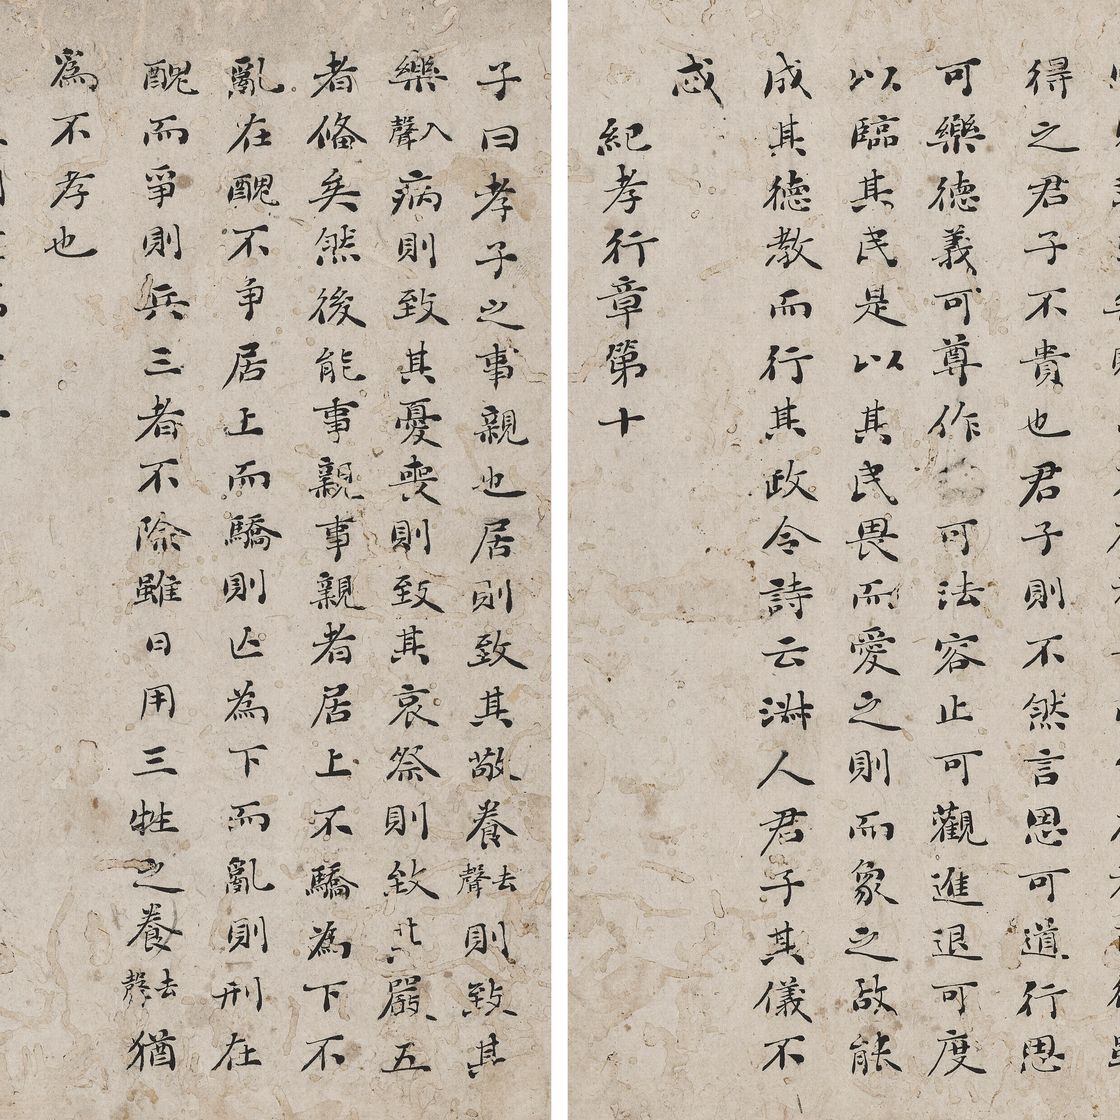 得之君子不貴也君子則不然言思可道行思
可樂德義可尊作可法容止可觀進退可度
以臨其民是以其民畏而愛之則而象之故能
成其德教而行其政令詩云淑人君子其儀不
忒
紀孝行章第十
子曰孝子之事親也居則致其敬養去聲則致其
樂入聲病則致其憂喪則致其哀祭則致其嚴五
者俻矣然後能事親事親者居上不驕爲下不
亂在醜不争居上而驕則亡為下而亂則刑在
醜而爭則兵三者不除雖日用三牲之養去聲猶
爲不孝也